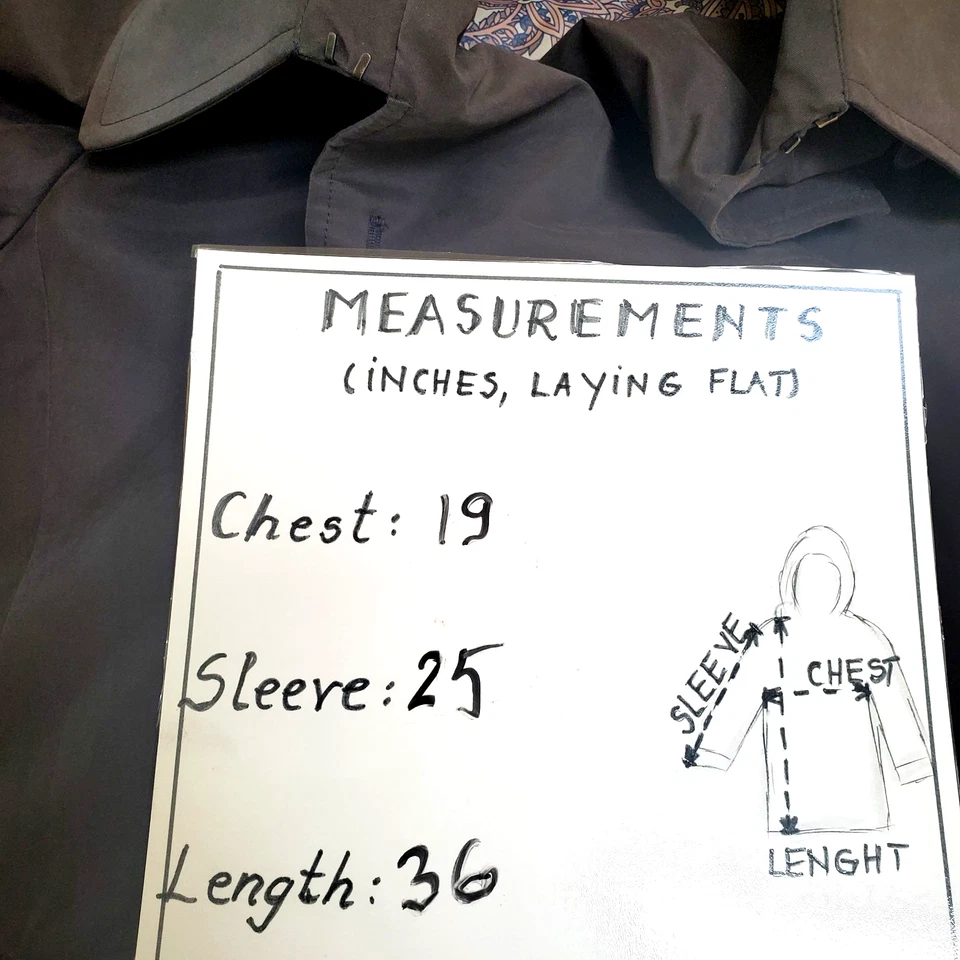 MEASUREMENTS
(iNCHES, LAYiNG FLAT)
Chest: 19
Sleeve: 25
Length: 36
SLEEVE
CHEST
LENGHT